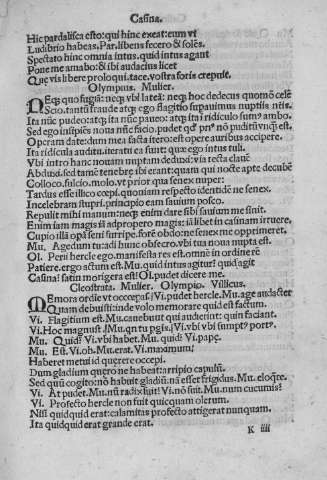 Casina.
Hic pardalisca esto: qui hinc exeat: eum vt
Ludibrio habeas. Par. libens fecero & soleńs.
Spectato hinc omnia intus. quid intus agant
Pone me amabo: & ibi audacius licet
Que vis libere proloqui. tace. vostra foris crepuit.
Olympius. Mulier.
NEqʒ quo fugiã: neqʒ vbi lateã: neqʒ hoc dedecus quomõ celẽ
Scio. tantũ fraude atqʒ ego flagitio supauimus nuptiis nr̃is.
Ita nũc pudeo: atqʒ ita nũc paueo: atqʒ ita ridiculo sumꝰ ambo.
Sed ego insipiẽs noua nũc facio. pudet qđ prꝰ nõ puditũ vnqʒ est.
Operam date: dum mea facta itero: est opere auribus accipere.
Ita ridicula auditu. iteratu ea sunt: que ego intus tuli.
Vbi intro hanc nouam nuptam deduxi: via recta clauẽ
Abduxi. sed tamẽ tenebre ibi erant: quam qui nocte apte decubẽ
Colloco. fulcio. molo. vt prior qua senex nuper:
Tardus esse illico cœpi. quoniam respecto identidẽ ne senex.
Incelebram stupri. principio eam sauium posco.
Repulit mihi manum: neqʒ enim dare sibi sauium me sinit.
Enim iam magis iã adpropero magis: iã libet in casinam irruere.
Cupio illã opã seni surripe. forẽ obdo: ne senex me opprimeret.
Mu. Agedum tu: adi hunc obsecro. vbi tua noua nupta est.
Ol. Perii hercle ego. manifesta res est. omnẽ in ordine rẽ
Patiere. ergo actum est. Mu. quid intus agitur? quid agit
Casina? satin morigera est? Ol. pudet dicere me.
Cleostrata. Mulier. Olympio. Villicus.
MEmora ordĩe vt occœpas? Vi. pudet hercle. Mu. age audacter
Quam debuisti: inde volo memorare quid est factum.
Vi. Flagitium est. Mu. canebunt qui audierint: quin faciant.
Vi. Hoc magnus? Mu. qn tu pgis? Vi. vbi vbi sumptꝰ portꝰ.
Mu. Quid? Vi. vbi habet. Mu. quid? Vi. papę.
Mu. Est. Vi. oh. Mu. erat. Vi. maxumum?
Haberet metui id quęrere occœpi.
Dum gladium quero ne habeat: arripio capulũ.
Sed quũ cogito: nõ habuit gladiũ. nã esset frigidus. Mu. eloq̃re.
Vi. At pudet. Mu. nũ radix fuit? Vi. nõ fuit. Mu. num cucumis?
Vi. Profecto hercle non fuit quicquam olerum.
Nisi quidquid erat: calamitas profecto attigerat nunquam.
Ita quidquid erat grande erat.
K iiii